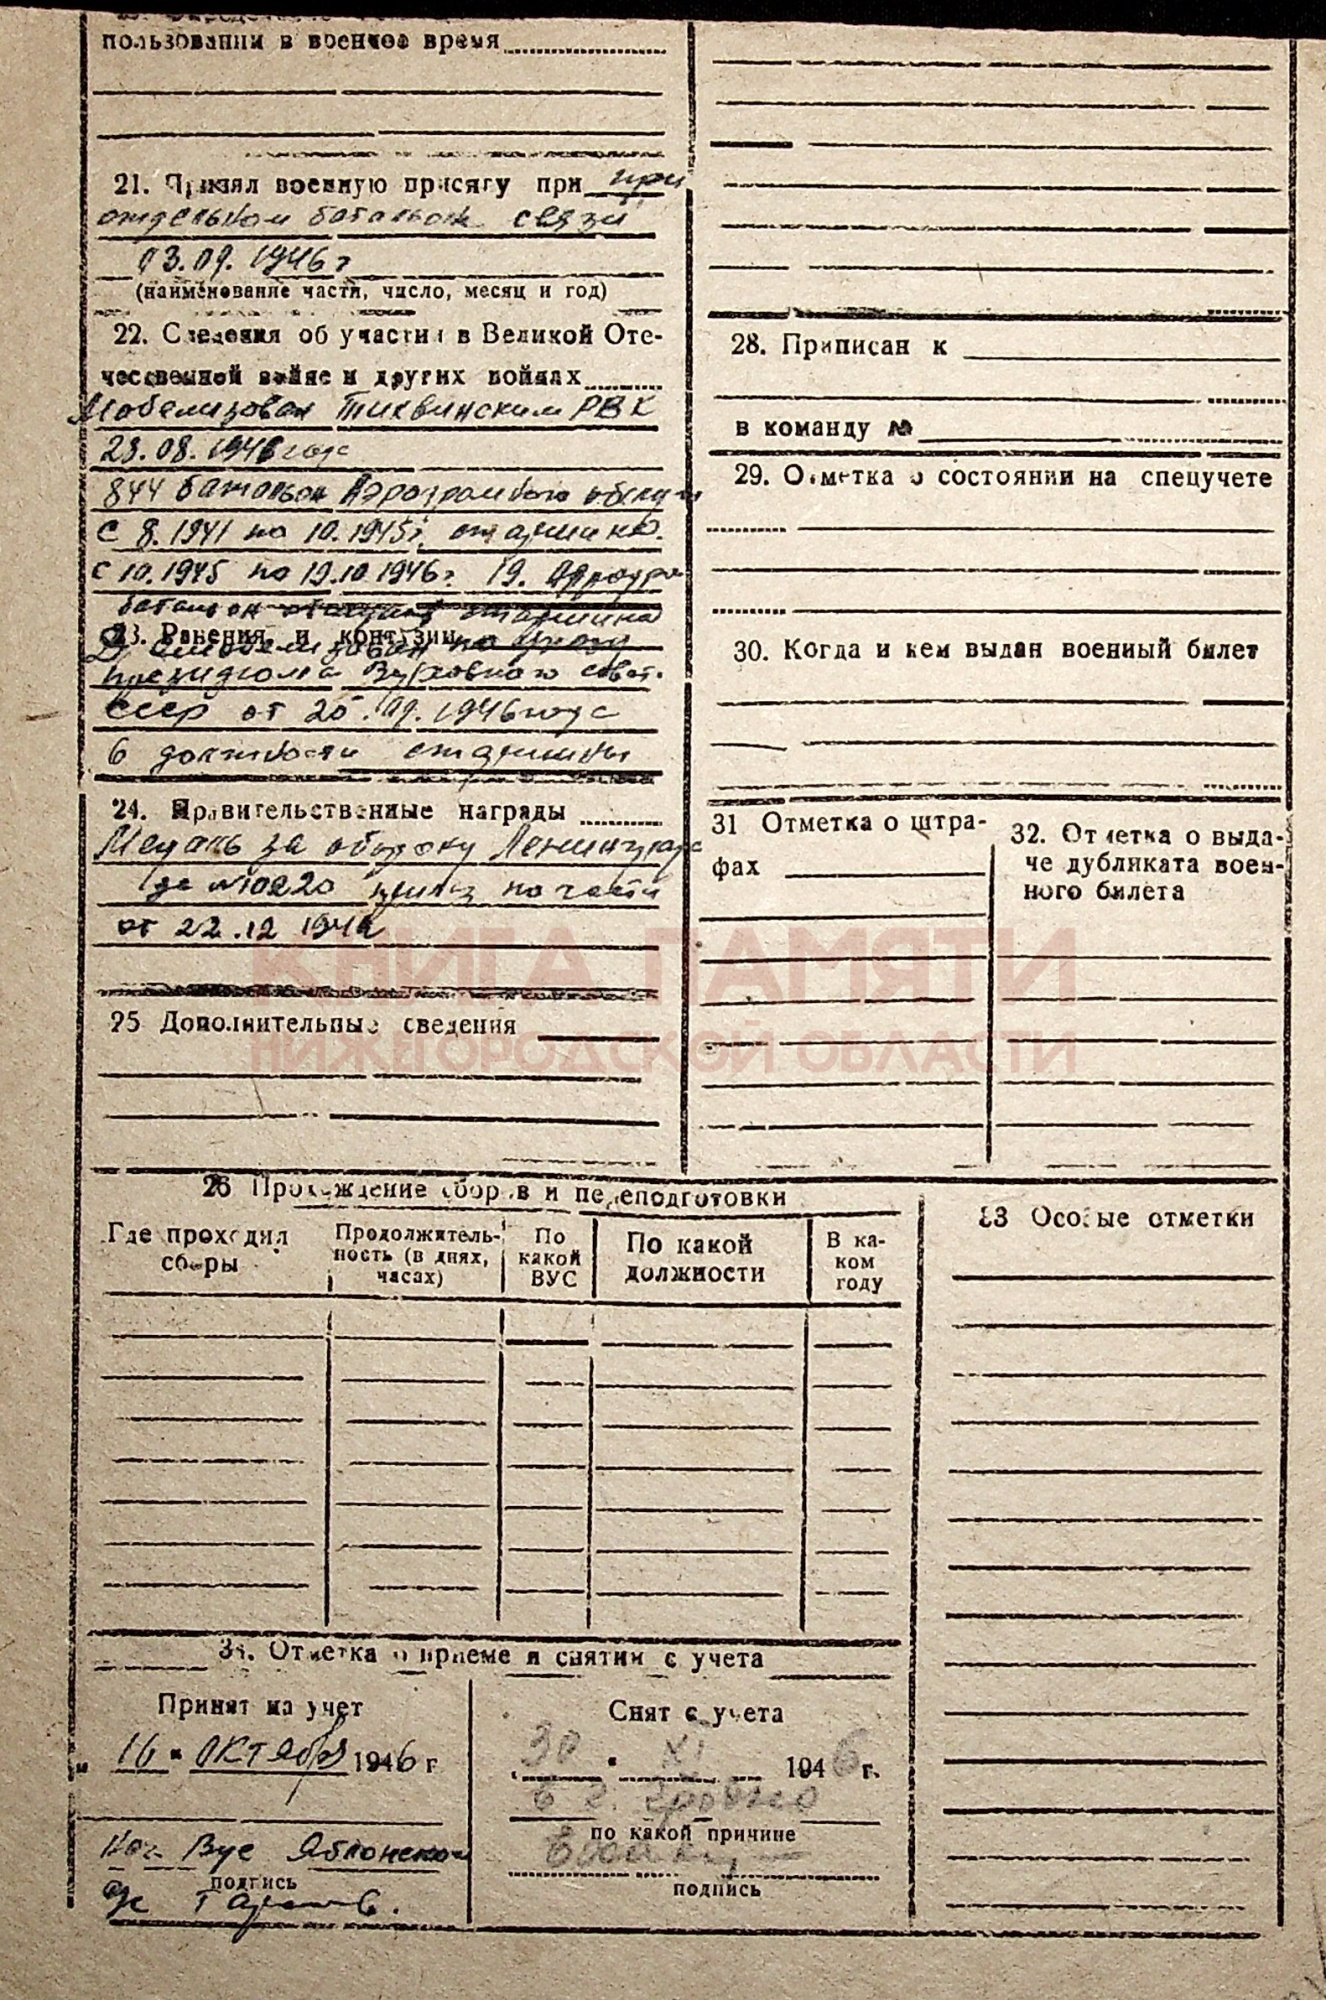 пользовании в военное время
21. Принял военную присягу при при
отдельном батальон связи
03.09.1946 г
(наименование части, число, месяц и год)
22. Сведения об участии в Великой Оте-
чественной войне и других войнах
Мобелизован Тихвинским РВК
844 батальон Аэродромного обслуж
с 8.1941 по 10.1945 г. старшина.
с 10.1945 по 19.10.1946 г. 19.
батальон старшина
23. Ранения и контузии
Демобелизован по Указу
президиума Верховного совет.
СССР от 20.09.1946 года
в должности старшины
24. Правительственные награды
Медаль за оборону Ленинграда
от 22.12
25 Дополнительные сведения
28. Приписан к
в команду №
29. Отметка о состоянии на спецучете
30. Когда и кем выдан военный билет
31 Отметка о штра-
фах
32. Отметка о выда-
че дубликата воен-
ного билета
КНИГА ПАМЯТИ
НИЖЕГОРОДСКОЙ ОБЛАСТИ
26 Прохождение сборов и переподготовки
Где проходил
сборы
Продолжитель-
ность (в днях,
часах)
По
какой
ВУС
По какой
должности
В ка-
ком
году
33 Особые отметки
34. Отметка о приеме и снятии с учета
Принят на учет
16 " октября 1946 г
подпись
Снят с учета
30 " XI 1946 г.
в г. Гродно
по какой причине
подпись